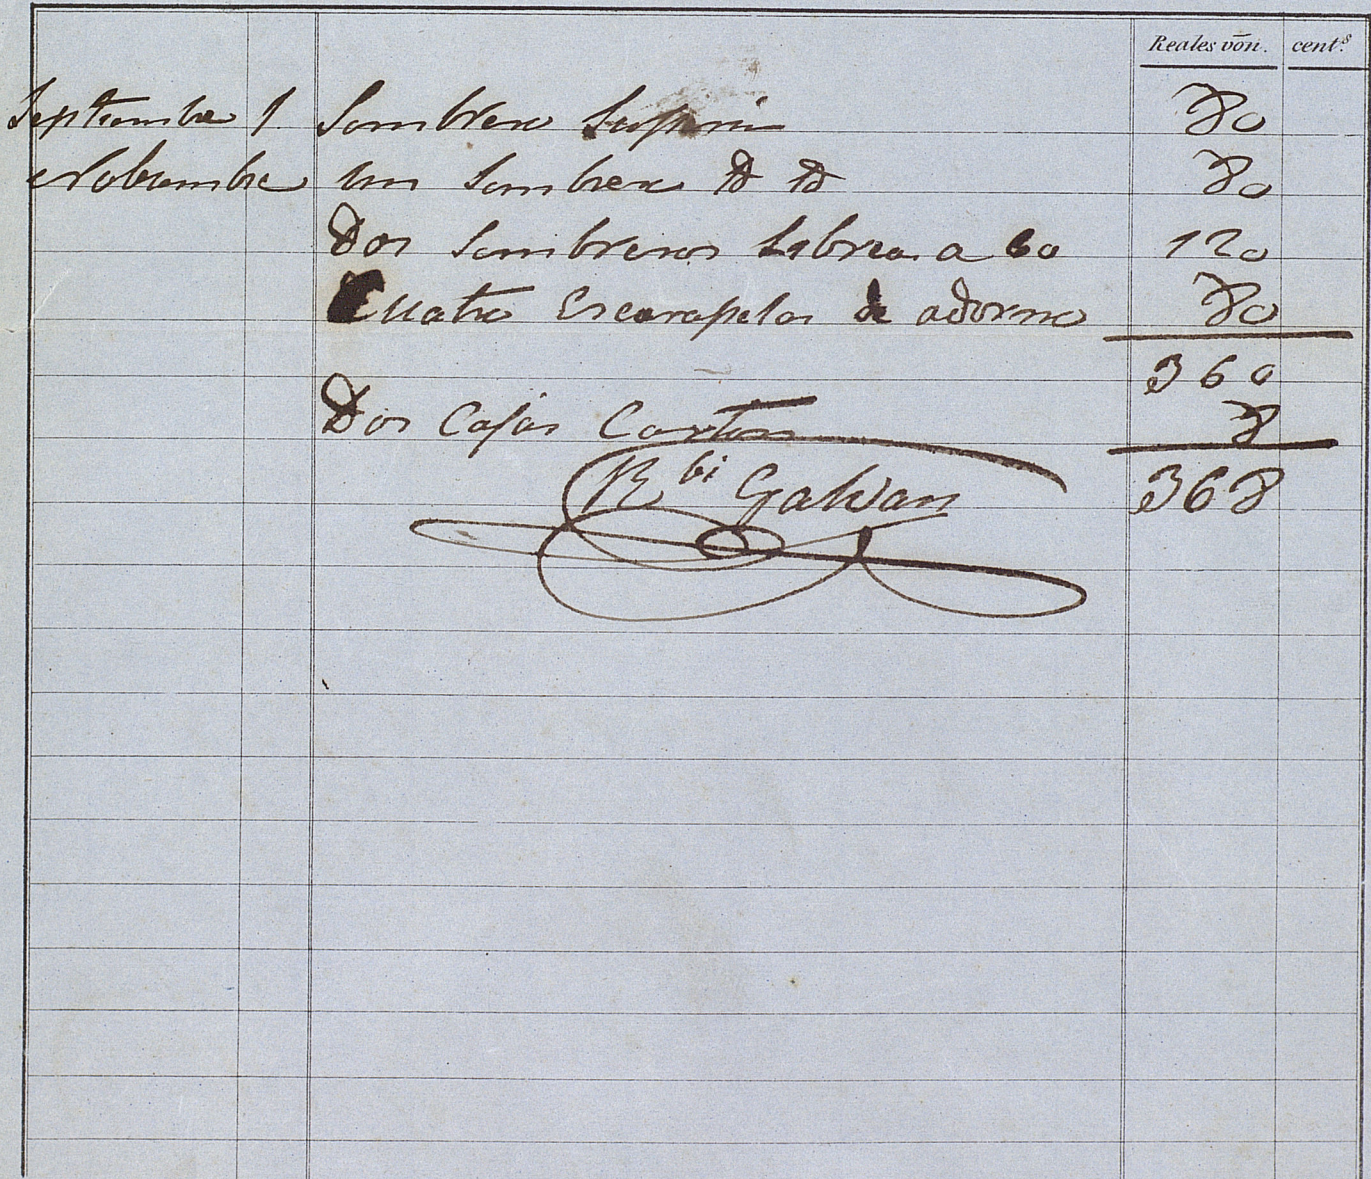 Reales von. cent.s
Septiembre 1 Sombrero Superior 80
Nobiembre un Sombrero Id Id 80
Dos Sombreros Librea a 60 120
Cuatro Escarapelas de adorno 80
360
Dos Cajas Carton 8
R bi Galvan 368